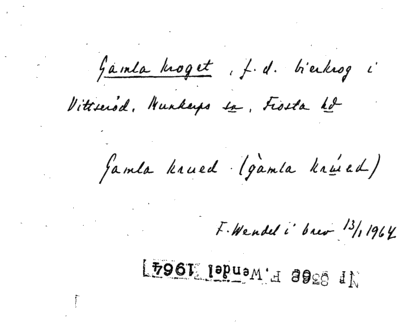 Gamla kroget, f.d. bierkrog i
Vittseröd, Munkarps sn, Frosta hd
Gamla krued (gàmla krúed)
F. Wendel i brev 13/1 1964
Nr 8362 F. Wendel 1964]